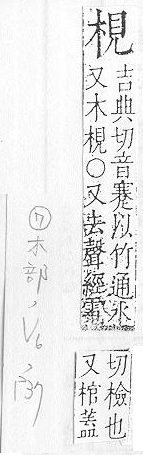 梘
吉典切音蹇以竹通水
又木梘○又去聲經電
切檢也
又棺蓋
⑦木部,